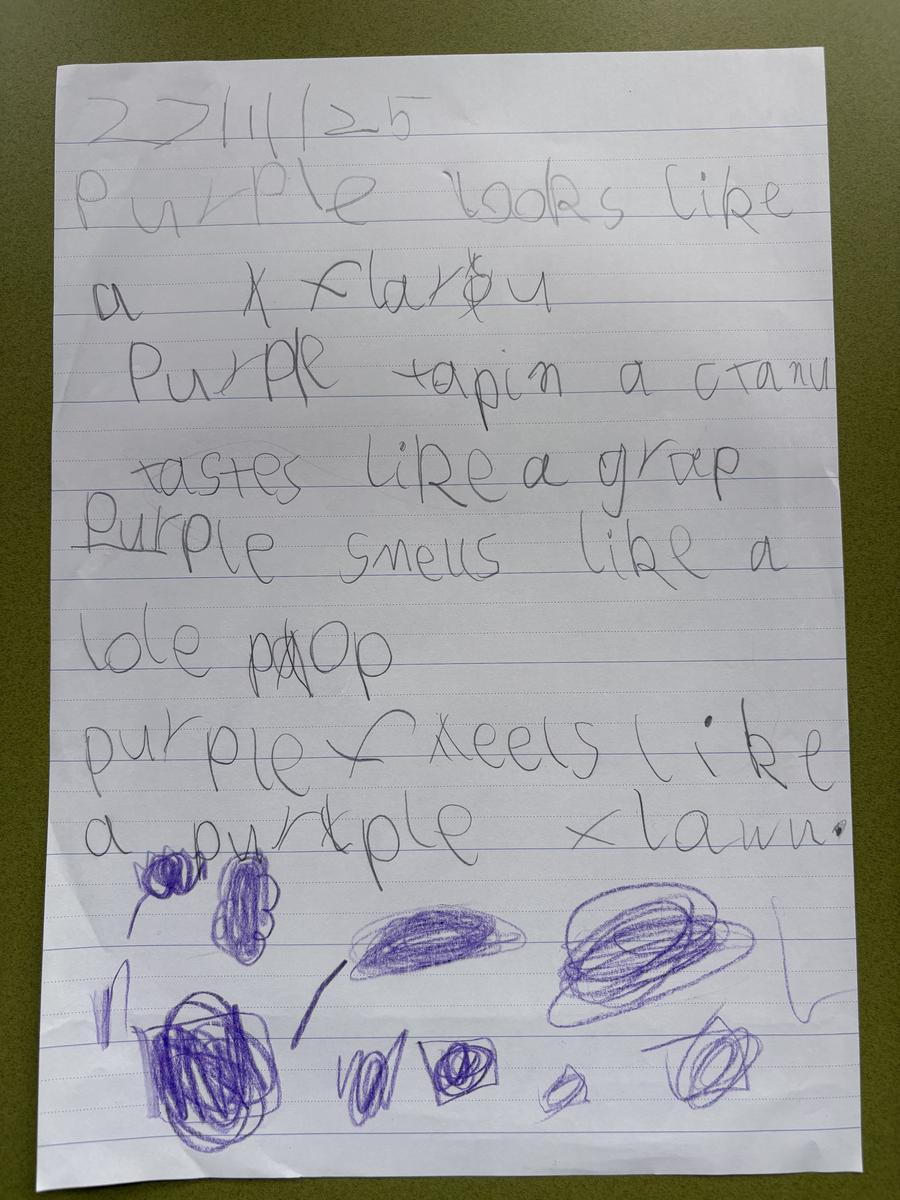 22/11/25
Purple looks like
a x flarou
Purple tapin a cranu
tastes like a grap
Purple smells like a
lole pop
purple feels like
a purple flawu.